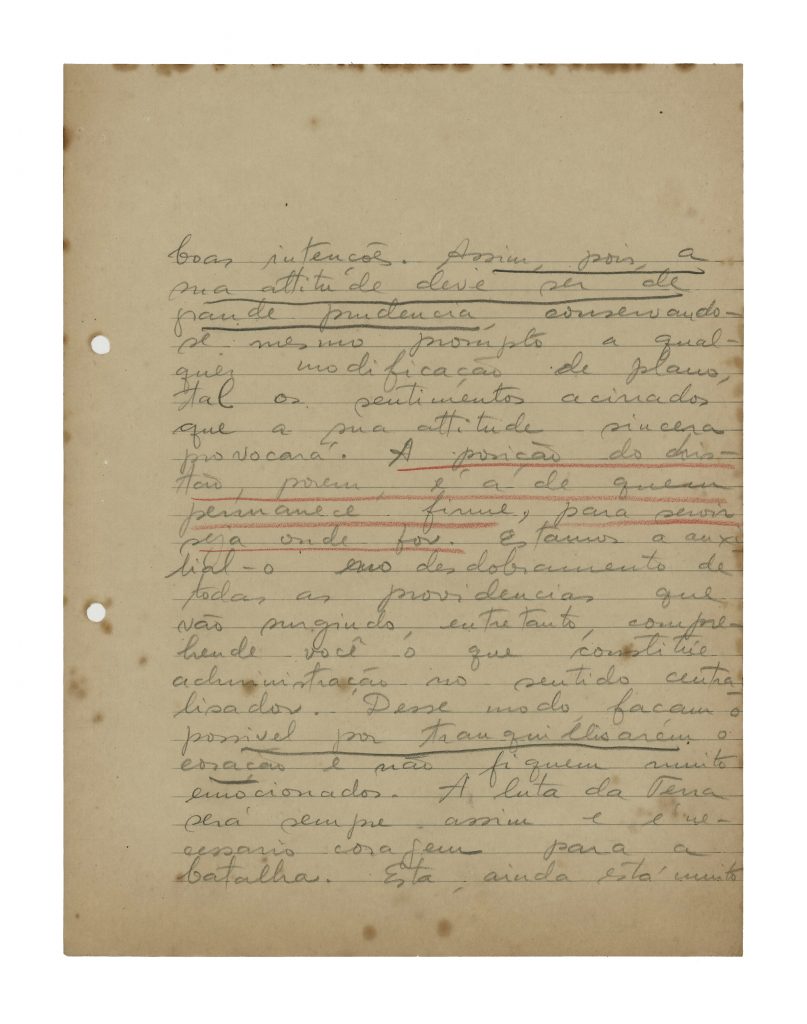 boas intenções. Assim, pois, a
sua attitude deve ser de
grande prudencia, conservando-
se mesmo prompto a qual-
quer modificação de plano,
tal os sentimentos acirrados
que a sua attitude sincera
provocará. A posição do chris-
tão, porem, é a de quem
permanece firme, para servir
seja onde for. Estamos a auxi
lial-o no desdobramento de
todas as providencias que
vão surgindo, entretanto, compre-
hende você o que constitúe
administração no sentido centra
lisador. Desse modo, façam o
possivel por tranquillisarem o
coração e não fiquem muito
emocionados. A luta da Terra
será sempre assim e é ne-
cessario coragem para a
batalha. Esta, ainda está muito